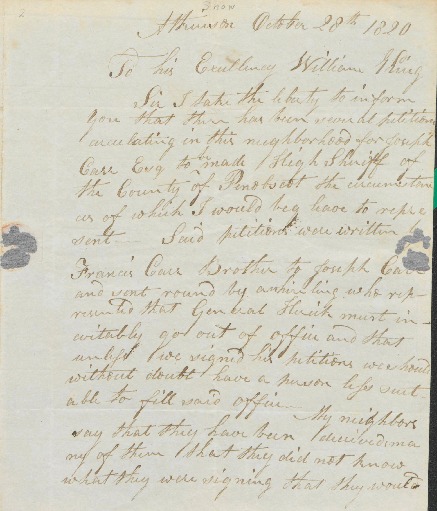 2
3 now
Atkinson October 28th 1820
To his Excellency William King
Sir I take the liberty to inform
you that there has been several petitions
circulating in this neighborhood for Joseph
Carr Esq to be made High Sheriff of
the County of Penobscot the circumstan
ces of which I would beg leave to repre
sent Said petitions were written
Francis Carr Brother to Joseph Carr
and sent round by a who rep-
resented that General Herrick must in-
evitably go out of office and that
unless we signed his petitions we should
without doubt have a person less suit-
able to fill said office
My neighbors
say that they have been deceived ma
ny of them that they did not know
what they were signing that they would